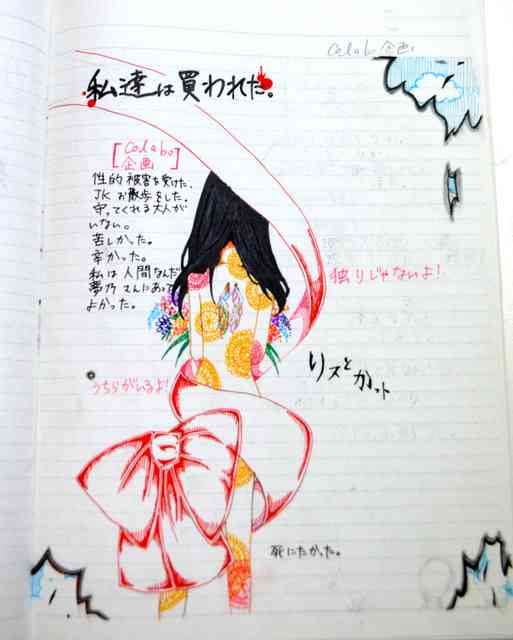 Colabo企画
私達は買われた。
[Colabo
企画]
性的被害を受けた.
JKお散歩をした.
守ってくれる大人が
いない。
苦しかった。
辛かった。
私は人間なんだ
夢乃さんにあって
よかった。
独りじゃないよ!
リスとカット
うちらがいるよ!
死にたかった。